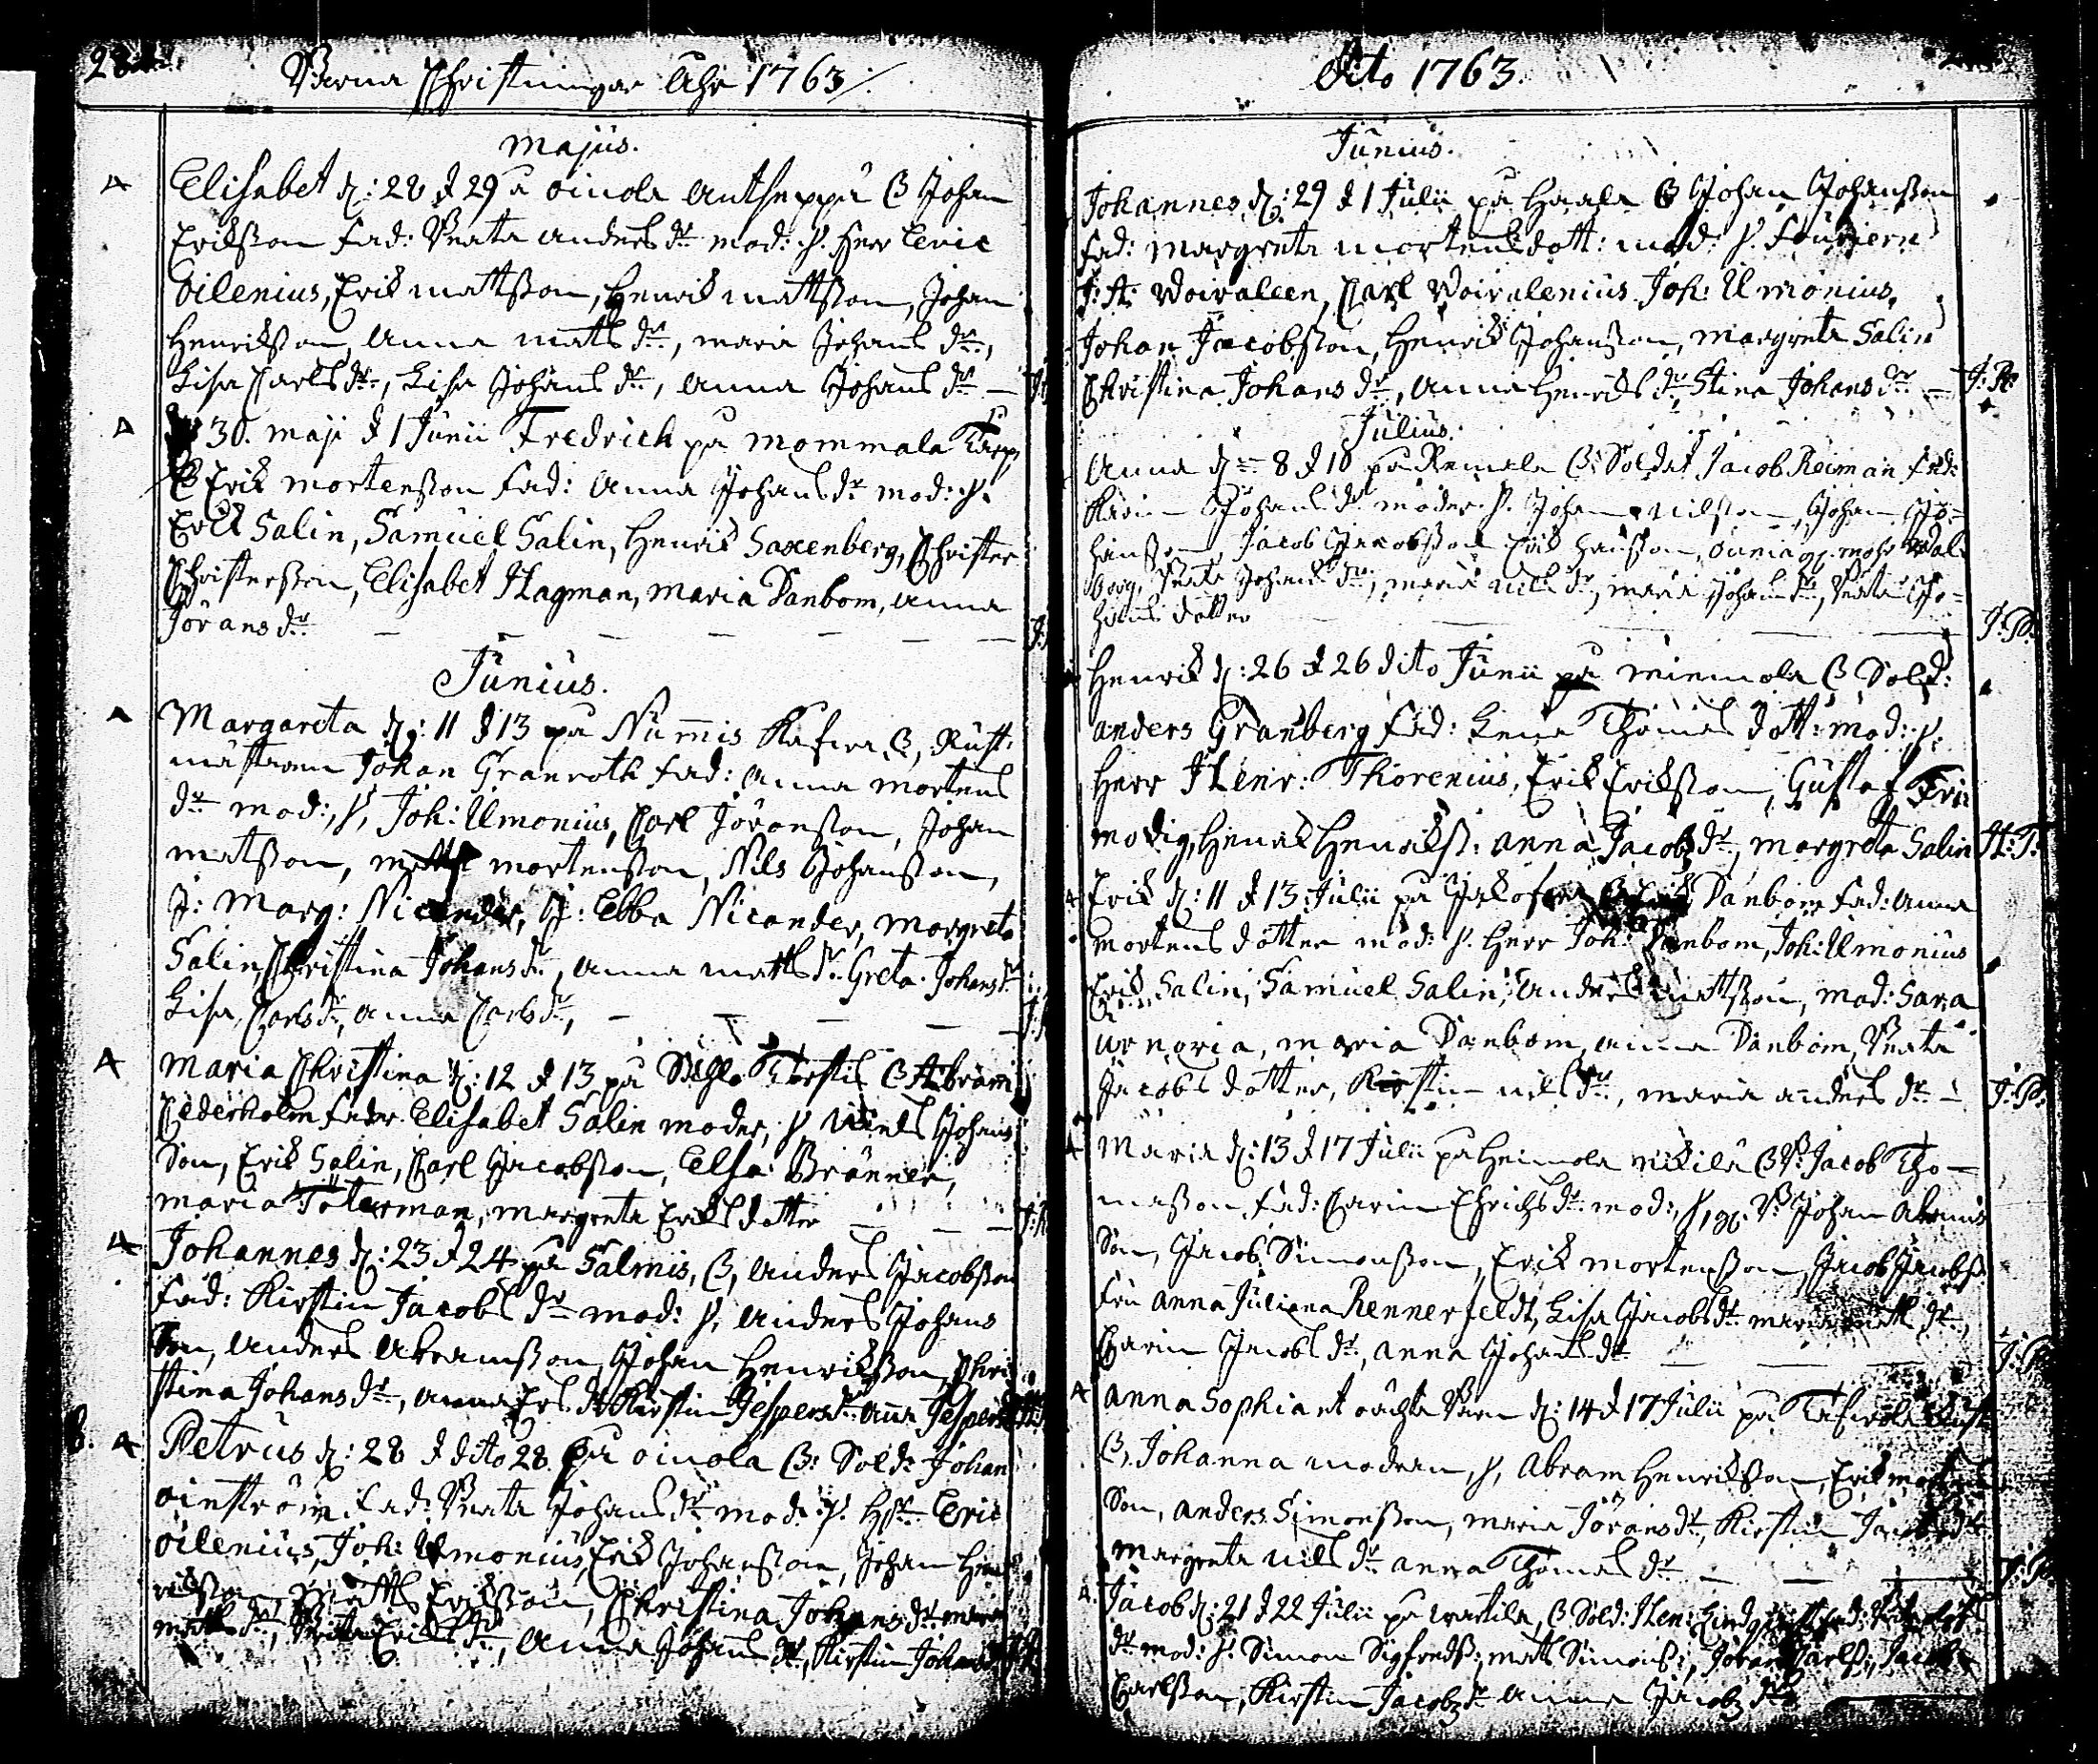 Barna Christningar Ahr 1763
Majus.
Elisabet d: 28 d 29 a oinola Antseppä B Johan
Eriksson fad: Beata Anders dr mod: S. Herr Eric
Oilenius, Erik Mattsson, Henrik Mattsson, Johan
Henriksson, Anna Mats dr, Maria Johans dr,
Lisa Carls dr, Lisa Johans dr, Anna Johans dr —
30. Maji d 1 Junii Fredrich på Mommala
B Erik Mortensson fad: Anna Johans dr mod: S.
Erik Salin, Samuel Salin, Henrik Saxenberg, Christer
Christersson, Elisabet Hagman, Maria Danbom, Anna
Jörans dr
Junius.
Margareta d: 11 d 13 på Nummis B, Rust-
mästaren Johan Granroth fad: Anna Mortens
dr mod:, S, Joh: Umonius, Carl Jöransson, Johan
Matsson, Mortensson, Nils Johansson,
J: Marg: Nicander, J: Ebba Nicander, Margreta
Salin, Christina Johans dr, Anna Matts dr Greta Johans dr
Lisa Carls dr, Anna Carls dr,
Maria Christina d: 12 d 13 på B Abram
Cederholm fader Elisabet Salin moder, S Johans
Son, Erik Salin, Carl Jacobsson, Elsa Bränner,
Maria Töterman, Margreta Eriks dotter
Johannes d: 23 d 24 på Salmis, B, Anders Jacobsson
fad: Kirstin Jacobs dr mod: S, Anders Johans
Son, Anders Abramsson, Johan Henriksson, Chri
stina Johans dr, Anna dr Kirstin Jespers dr Anna Jespers
B. Petrus d: 28 d dito 28 på oinola B: Sold: Johan
öinström fad: Beata Johans dr mod: S. Eric
Oilenius, Joh: Umonius, Erik Johansson, Johan Hen
riksson, Matts Eriksson, Christina Johans dr Maria
Matts dr, Eriks dr, Anna Johans dr, Kirstin Johans
Dito 1763.
Junius.
Johannes d: 29 d 1 Julii på Haala B Johan Johansson
fad: Margreta Mortens dott: mod: S. Fouriern
J: A: Woivaleen, Carl Woivalenius Joh: Umonius,
Johan Jacobsson, Henrik Johansson, Margreta Salin
Christina Johans dr, Anna Henriks dr Stina Johans dr —
Julius.
Anna d 8 d 10 på Remala B: Soldat Jacob Reiman fad:
Karin Johans dr moder S. Johan Nilsson, Johan Jo-
hansson, Jacob Jacobsson Erik Hansson, Wal
borg, Beata Johans dr, Maria Nils dr, Maria Johans dr, Beata Jo-
hans dotter
Henrik d: 26 d 26 dito Junii på B Sold:
Anders Granberg fad: Lena Thomas dott: mod: S.
Herr Henr: Thorenius, Erik Eriksson, Gustaf Fri
modig, Henrik Henrikss: Anna Jacobs dr, Margreta Salin H: T:
Erik d: 11 d 13 Julii på B Erik Danbom fad: Anna
Mortens dotter mod: S. Herr Joh: Danbom, Joh: Umonius
Erik Salin, Samuel Salin, Anders Mattsson, mad: Sara
Wenoria, Maria Danbom, Anna Danbom, Beata
Jacobs dotter, Kirstin Nils dr, Maria Anders dr —
Maria d: 13 d 17 Julii på Heimola Nikilä B Jacob Tho-
masson fad: Carin Ehrichs dr mod:, S, Johan Abrams
Son, Jacob Simonsson, Erik Mortensson, Jacob Jacobss
Fru Anna Juliana Rennerfeldt, Lisa Jacobs dr Maria Matts dr,
Carin Jacobs dr, Anna Johans dr
Anna Sophia et oächta Barn d: 14 d 17 Julii på
B, Johanna modern, S, Abram Henriksson, Erik Mortens
Son, Anders Simonsson, Maria Jörans dr, Kirstin Jacobs dr
Margreta Nils dr Anna Thomas dr
Jacob d: 21 d 22 Julii på Wartila, B Sold: Hen: Lindqvist fad:
dr mod: S. Simon Sigfredss:, Matts Simonss:, Johan Carlss:, Jacob
Carlsson, Kirstin Jacobs dr Anna Jacobs dr